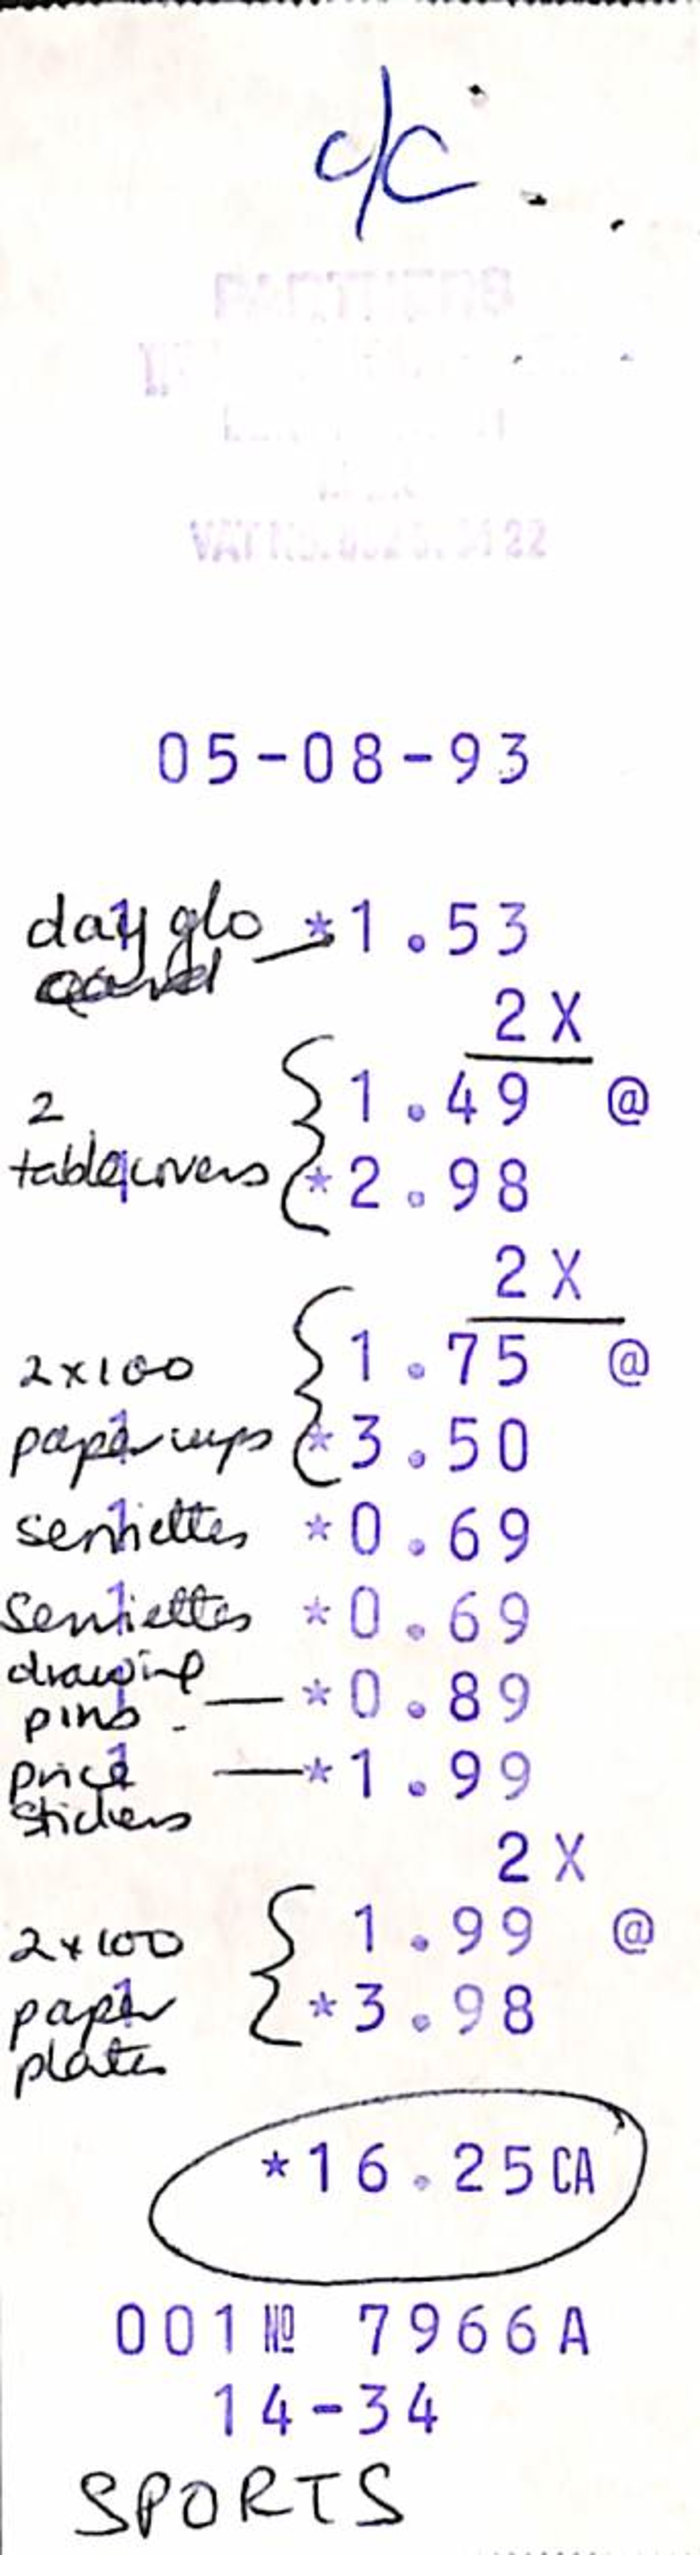 c/c
PARTNERS
VAT No.
05-08-93
day glo *1.53
card
2 X
1.49 @
2
tablecovers *2.98
2 X
2x100 1.75 @
paper cups *3.50
serviettes *0.69
serviettes *0.69
drawing
pins - *0.89
price *1.99
stickers
2 X
2x100 1.99 @
paper *3.98
plates
*16.25 CA
001 № 7966A
14-34
SPORTS